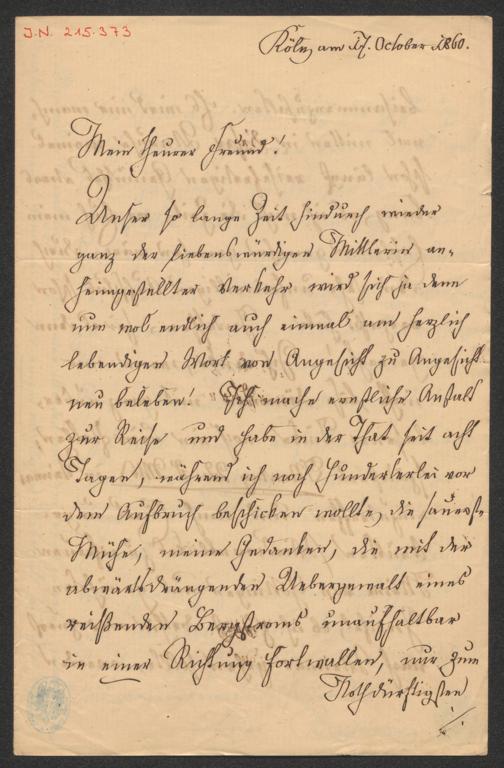 J.N. 215.373
Köln am 17. October 1860.
Mein theurer Freund!
Unser so lange Zeit hindurch wieder
ganz der liebenswürdigen Mittlerin an-
heimgestellter Verkehr wird sich ja denn
nun wol endlich auch einmal am herzlich
lebendigen Wort von Angesicht zu Angesicht
neu beleben! Ich mache ernstliche Anstalt
zur Reise und habe in der That seit acht
Tagen, während ich noch Hunderterlei vor
dem Aufbruch beschicken wollte, die sauerste
Mühe, meine Gedanken, die mit der
abwärtsdrängenden Uebergewalt eines
reißenden Bergstroms unaufhaltbar
in einer Richtung fortwallen, nur zum
Nothdürftigsten